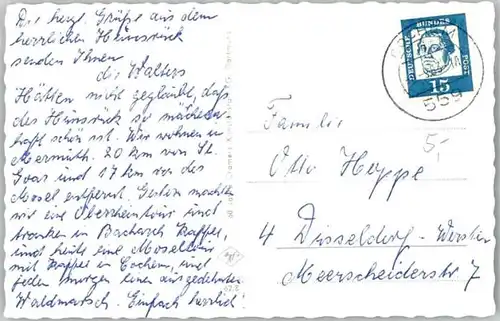 Die herzl. Grüße aus dem
herrlichen Hunsrück
senden Ihnen
die Walters
Hätten nicht geglaubt, daß
der Hunsrück so märchen-
haft schön ist. Wir wohnen in
Mermuth. 20 km von St.
Goar und 17 km von der
Mosel entfernt. Gestern machten
wir eine Überrheintour und
tranken in Bacharach Kaffee,
und heute eine Moseltour
mit Kaffee in Cochem, und
jeden morgen einen ausgedehnten
Waldmarsch. Einfach herrlich!
DEUTSCHE BUNDESPOST
15
559
5,-
Familie
Otto Hoppe
4 Düsseldorf-Wersten
Meerscheiderstr. 7